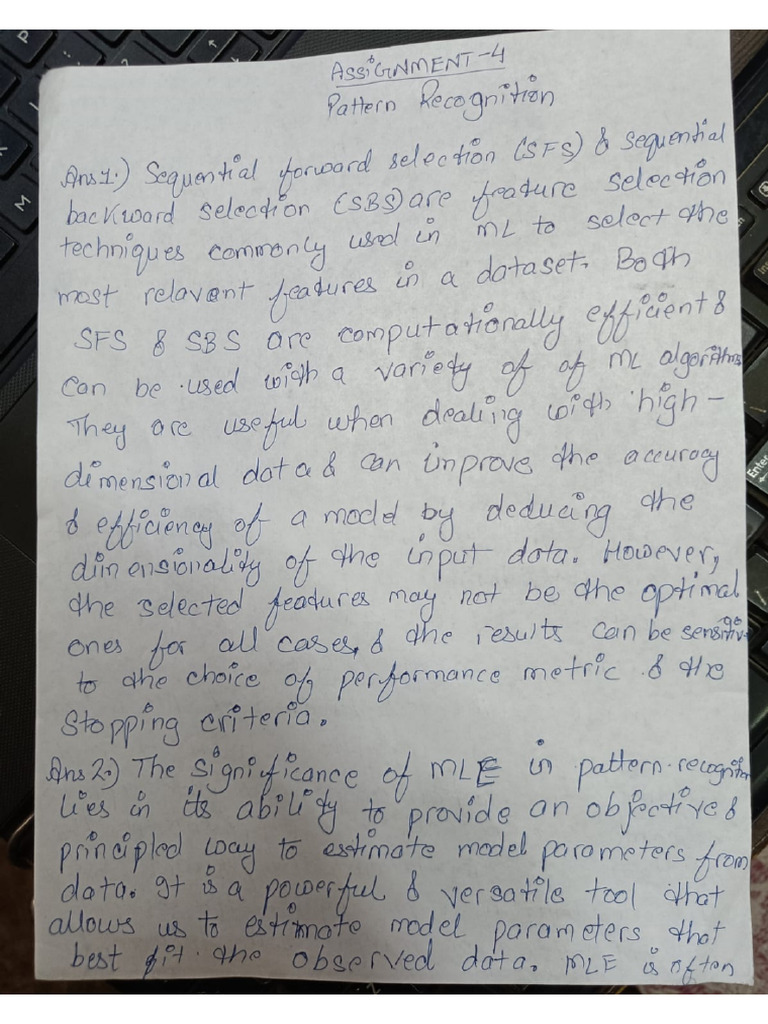 ASSIGNMENT-4
Pattern Recognition
Ans1.) Sequential forward selection (SFS) & sequential
backward selection (SBS) are feature selection
techniques commonly used in ML to select the
most relavent features in a dataset. Both
SFS & SBS are computationally efficient &
can be used with a variety of of ML algorithms
They are useful when dealing with high-
dimensional data & can improve the accuracy
& efficiency of a model by deducing the
dimensionality of the input data. However,
the selected features may not be the optimal
ones for all cases, & the results can be sensitive
to the choice of performance metric & the
stopping criteria.
Ans2.) The significance of MLE in pattern recognition
lies in its ability to provide an objective &
principled way to estimate model parameters from
data. It is a powerful & versatile tool that
allows us to estimate model parameters that
best fit the observed data. MLE is often
P
K
M
L
Enter